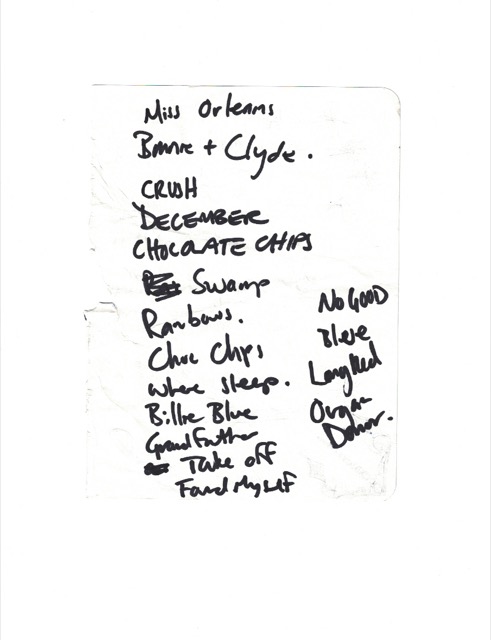 Miss Orleans
Bonnie + Clyde.
CRUSH
DECEMBER
CHOCOLATE CHIPS
Swamp
Rainbows.
Choc Chips
Where sleep.
Billie Blue
Grand Father
Take off
Found Myself
NO GOOD
Organ
Donor.